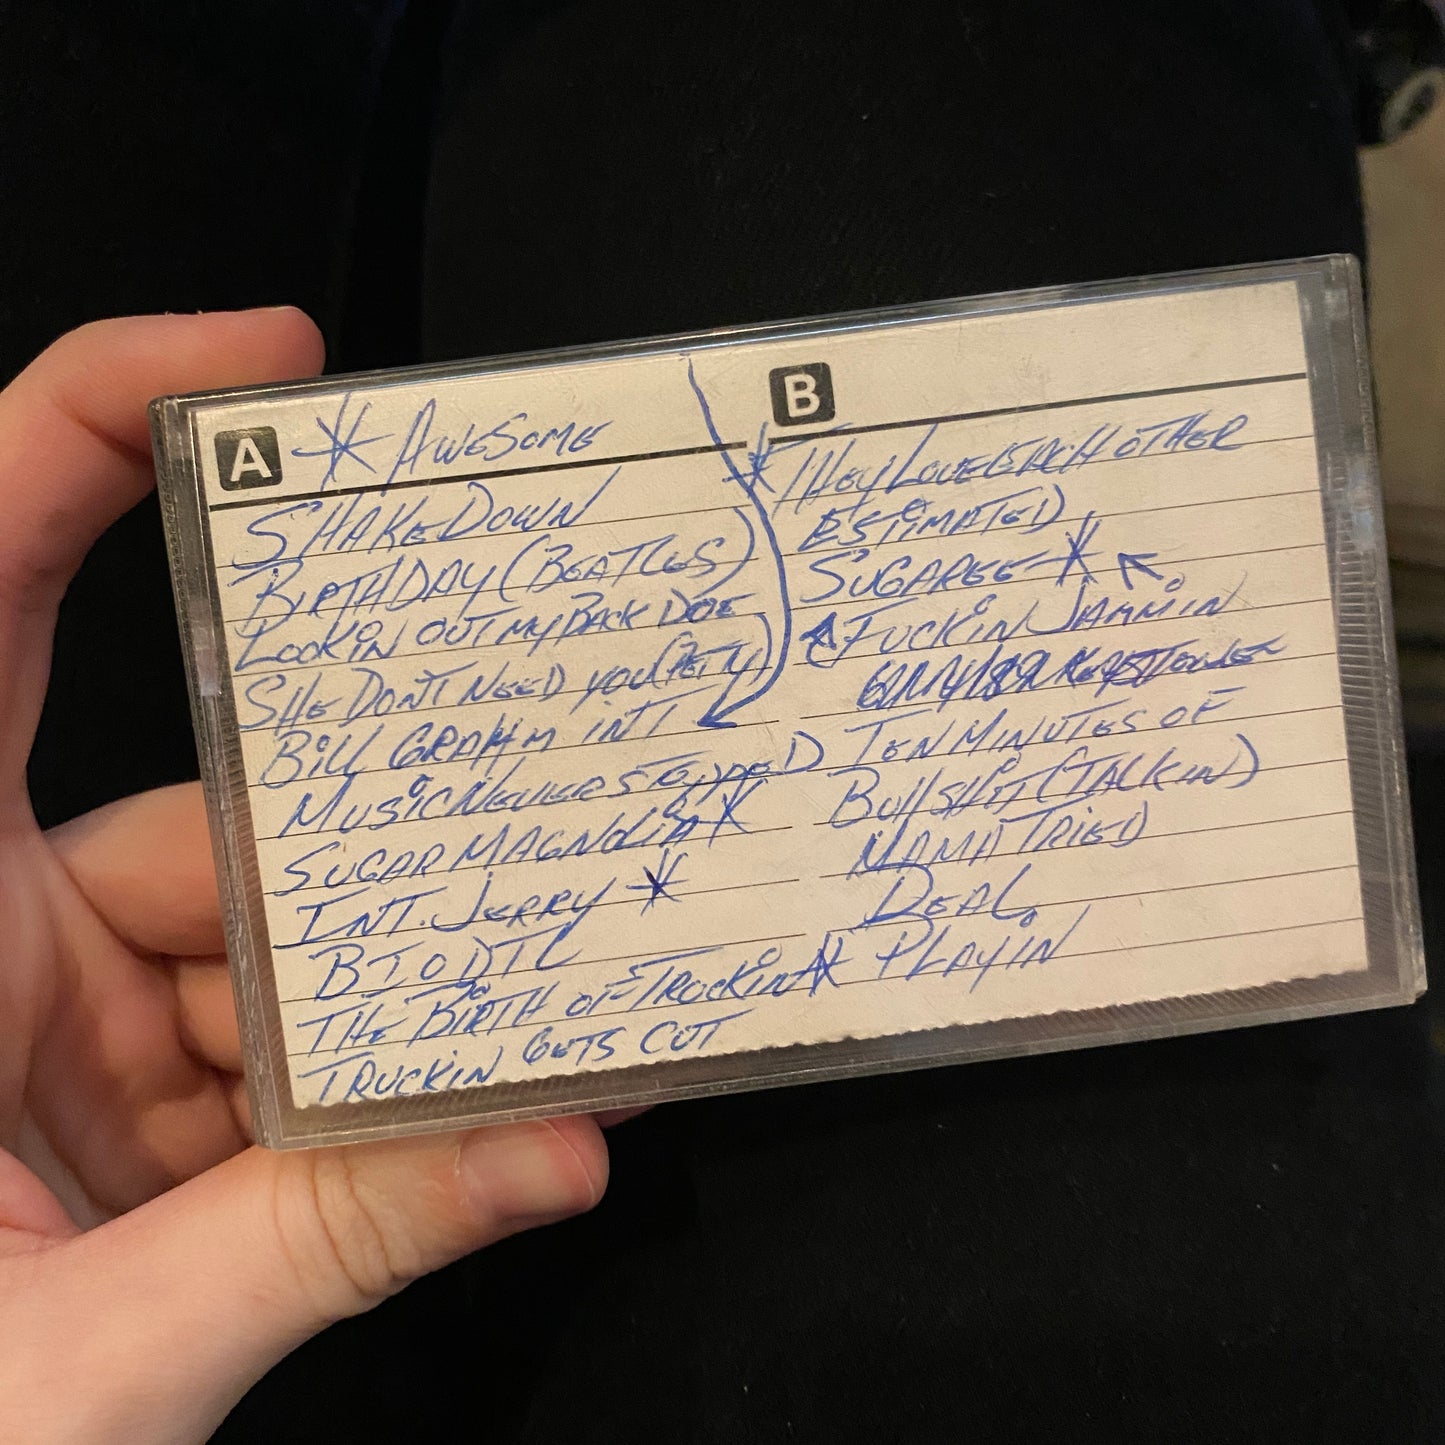 A * AWESOME
SHAKEDOWN
BIRTHDAY (BEATLES)
LOOKIN OUT MY BACK DOE
SHE DON'T NEED YOU (PETTY)
BILL GRAHAM INT
MUSIC NEVER STOPPED
SUGAR MAGNOLIA *
INT. JERRY *
BIODTL
THE BIRTH OF TRUCKIN *
TRUCKIN GETS CUT
B
* THEY LOVE EACH OTHER
ESTIMATED
SUGAREE *
FUCKIN JAMMIN
TEN MINUTES OF
BULLSHIT (TALKIN)
MAMA TRIED
DEAL
PLAYIN